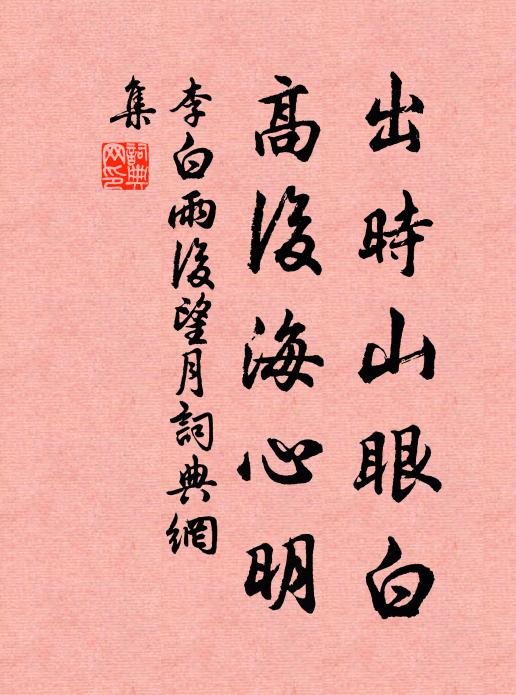 出時山眼白
高後海心明
李白雨後望月詞典網
集
詞典
网印